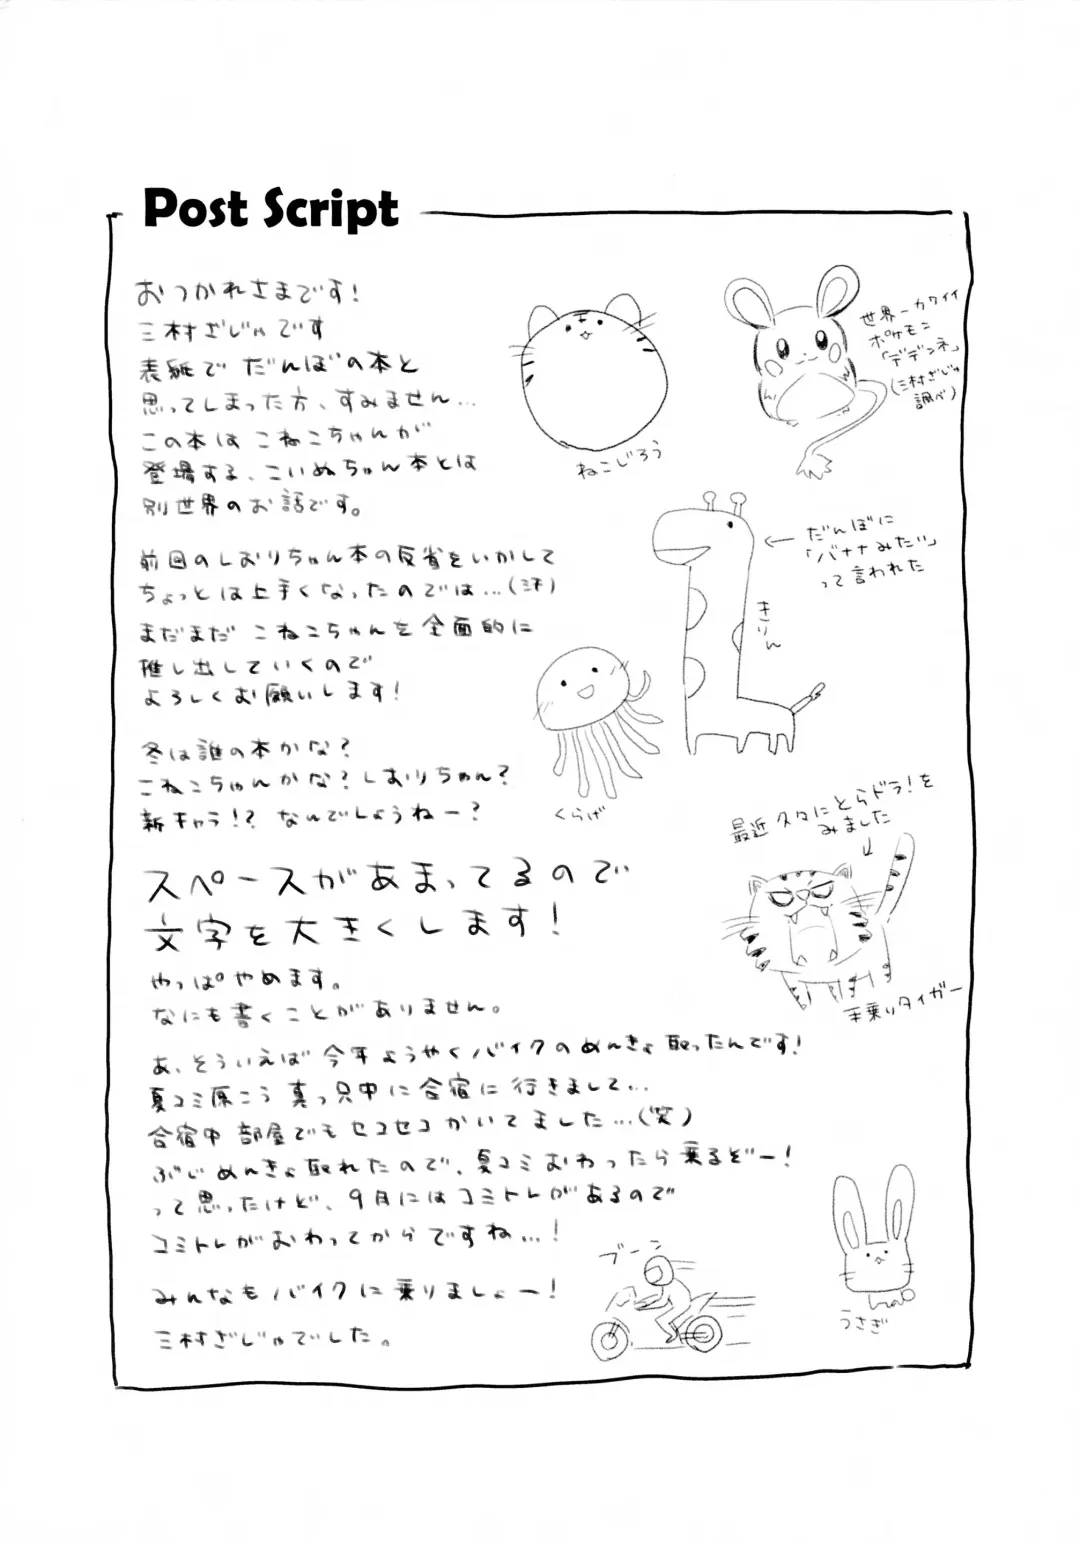 Post Script
おつかれさまです!
三村ざじゃです
表紙でだんぼの本と
思ってしまった方、すみません…
この本はこねこちゃんが
登場する、こいぬちゃん本とは
別世界のお話です。
前回のしおりちゃん本の反省をいかして
ちょっとは上手くなったのでは…(汗)
まだまだ こねこちゃんを全面的に
推し出していくので
よろしくお願いします!
冬は誰の本かな?
こねこちゃんかな?しおりちゃん?
新キャラ!? なんでしょうねー?
スペースがあまってるので
文字を大きくします!
やっぱやめます。
なにも書くことがありません。
あ、そういえば今年ようやくバイクのめんきょ取ったんです!
夏コミ原こう真っ只中に合宿に行きまして…
合宿中部屋でもセコセコかいてました…(笑)
ぶじめんきょ取れたので、夏コミおわったら乗るぞー!
って思ったけど、9月にはコミトレがあるので
コミトレがおわってからですね…!
みんなもバイクに乗りましょー!
三村ざじゃでした。
ねこじろう
世界一カワイイ
ポケモン
「デデンネ」
(三村ざじゃ
調べ)
だんぼに
「バナナみたい」
って言われた
きりん
くらげ
最近久々にとらドラ!を
みました
手乗りタイガー
ブーン
うさぎ